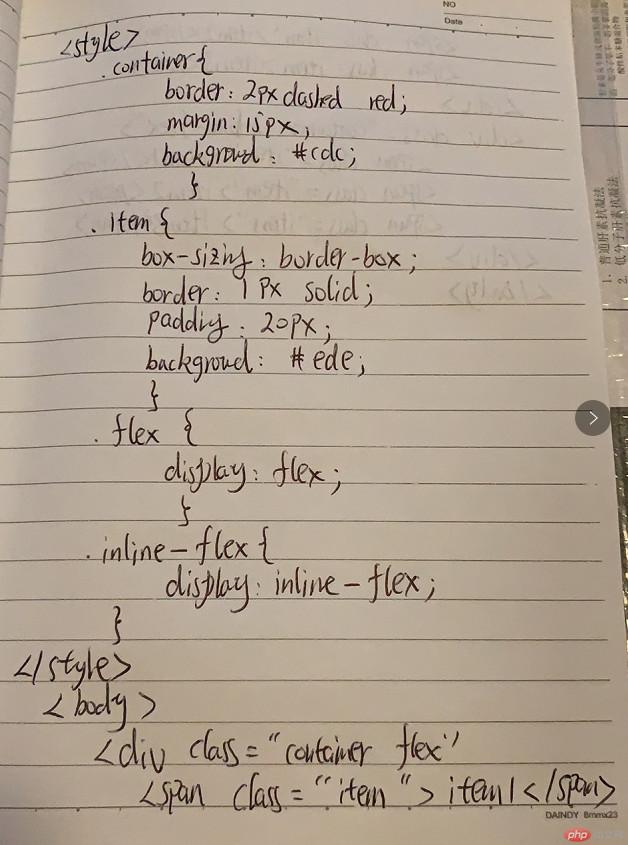 NO
Date
<style>
.container{
border: 2px dashed red;
margin: 15px;
background: #cdc;
}
.item{
box-sizing: border-box;
border: 1px solid;
padding: 20px;
background: #ede;
}
.flex {
display: flex;
}
.inline-flex{
display: inline-flex;
}
</style>
<body>
<div class="container flex"
<span class="item">item1</span>
DAINDY 8mmx23
1. 普通肝素抗凝法
2. 低分子肝素抗凝法
php